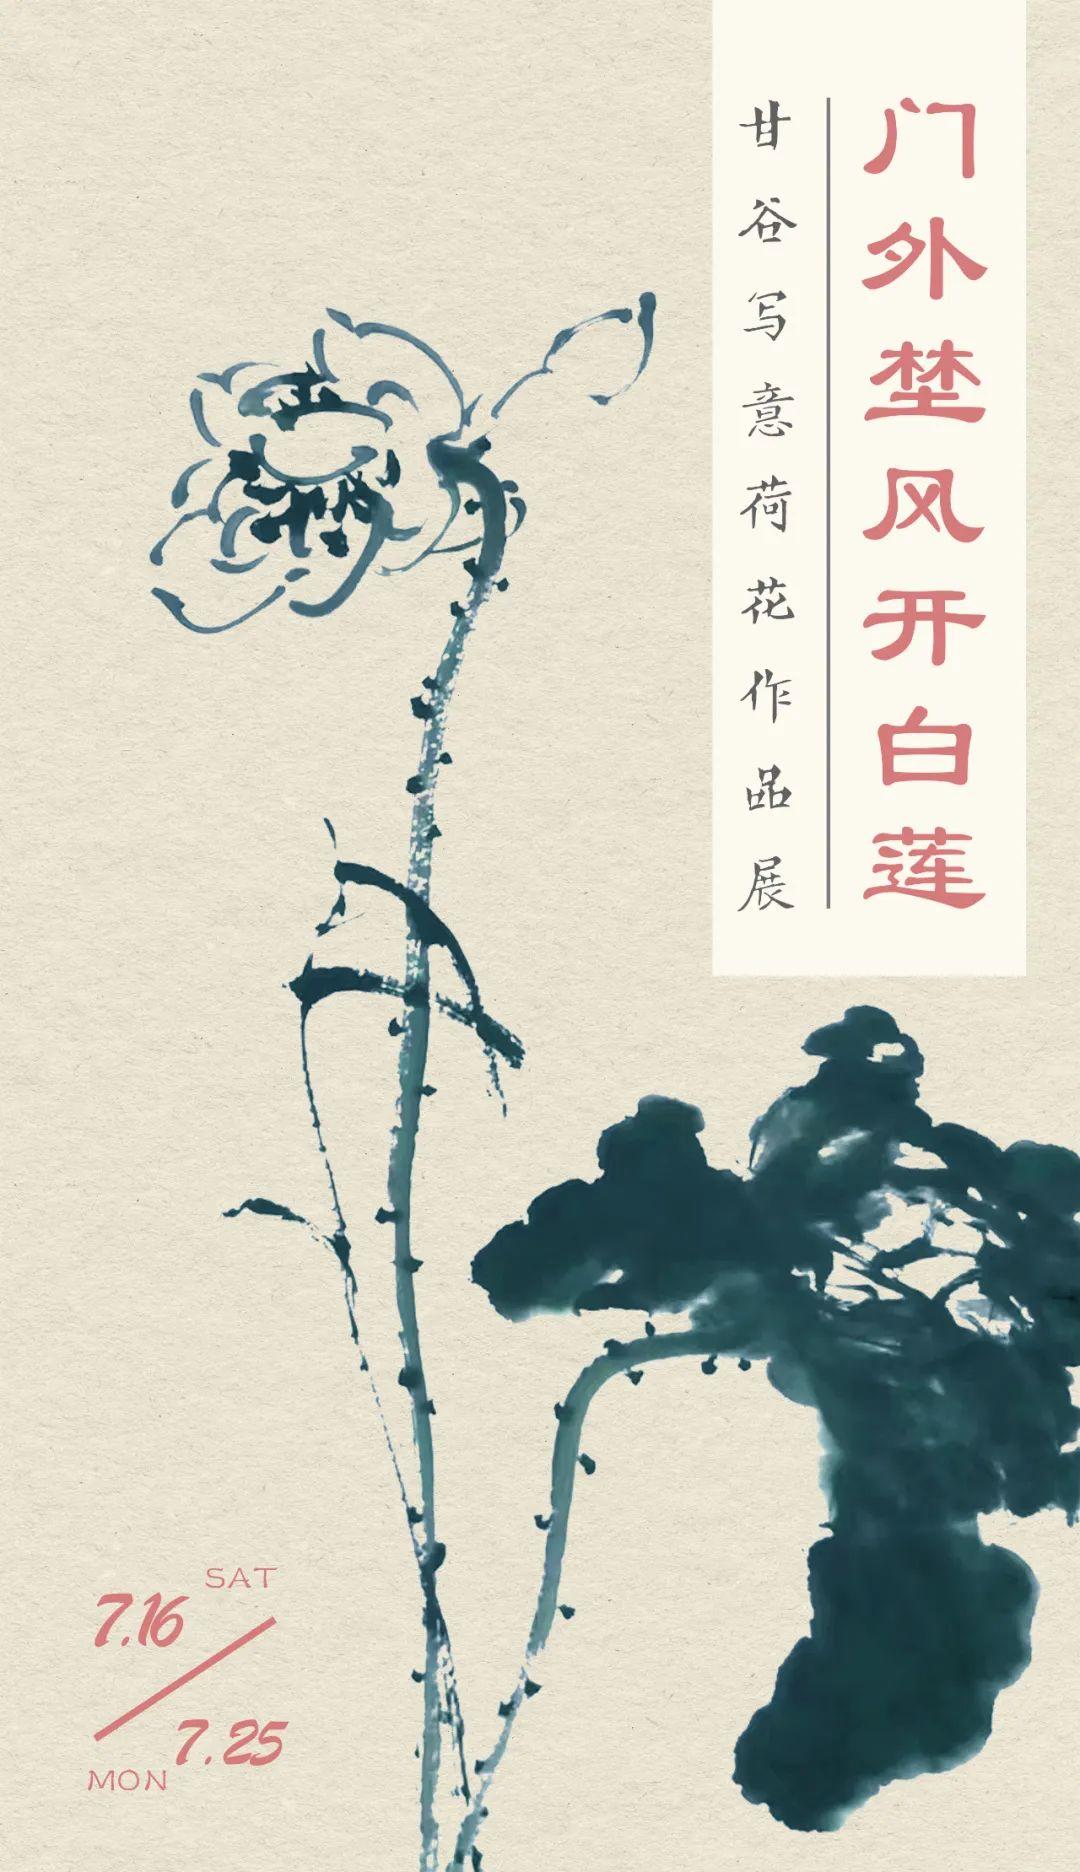 门外埜风开白莲
甘谷写意荷花作品展
SAT
7.16
7.25
MON